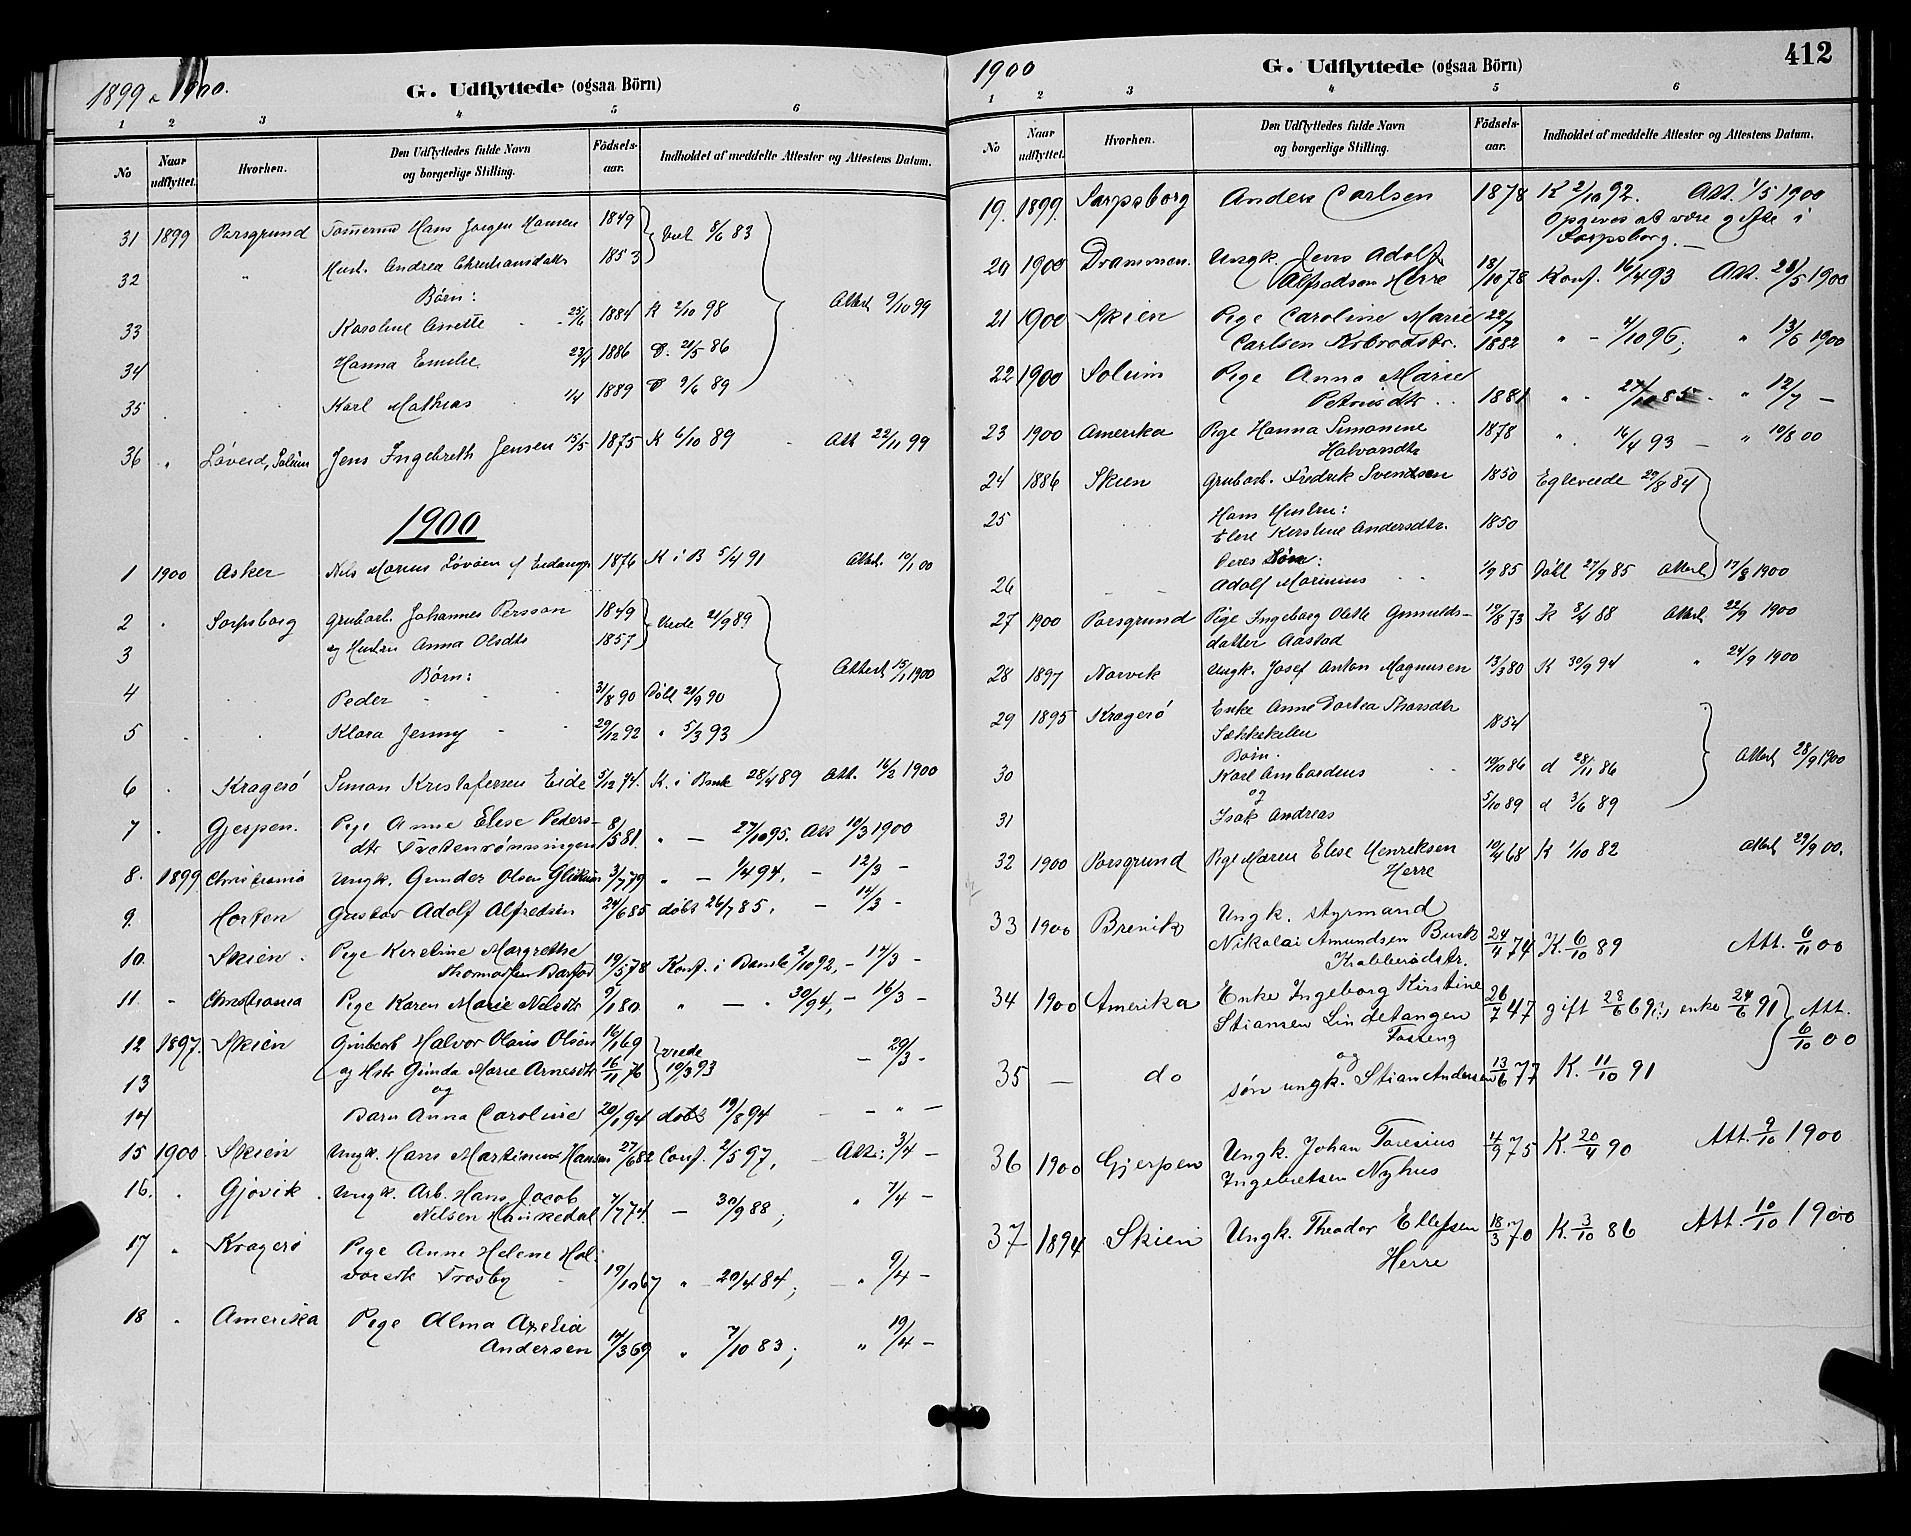 1899 & 1900.
G. Udflyttede (ogsaa Börn)
1 2 3 4 5 6
No Naar udflyttet. Hvorhen. Den Udflyttedes fulde Navn og borgerlige Stilling. Födsels-aar. Indholdet af meddelte Attester og Attestens Datum.
31 1899 Porsgrund Tømmermd Hans Jørgen Hansen 1849 Viel 8/6 83
32 " Hust. Andrea Christiansdatter 1853
Børn:
33 Karoline Anette 25/6 1884 K 2/10 98 Attest 9/10 99
34 Hanna Emilie 1886 D. 21/5 86
35 Karl Mathias 1/4 1889 D 9/6 89
36 " Løveid, Solum Jens Ingebreth Jensen 15/5 1875 K 6/10 89 Att 22/11 99
1900
1 1900 Asker Nels Marius Løvøen af Eidanger 1876 K i B 5/4 91 Attest. 10/1 00
2 Sarpsborg Grubarb. Johannes Persson 1849 Viede 21/9 89
3 og Hustru Anna Olsdtr 1857
Børn: Attest 15/1 1900
4 Peder 31/8 90 Døbt 21/9 90
5 Klara Jenny 29/12 92 " 5/3 93
6 Kragerø Simon Kristofersen Eide 5/12 74. K. i Bmle 28/4 89 Att. 16/2 1900
7 Gjerpen. Pige Anne Elise Peders-
dtr Tvetenrønningen 8/5 81. " — 27/10 95. Att 10/3 1900
8. 1899 Christiania Ungk. Gunder Olsen 3/7 79 " — 1/4 94, — 12/3 —
9. Horten Gustav Adolf Alfredsen 24/6 85 døbt 26/7 85, — 14/3 —
10. Skien. Pige Kirstine Margrethe
Thomassen Barfod 19/5 78 Konf. i Bamle 2/10 92, — 14/3 —
11. — Christiania Pige Karen Marie Nilsdtr 9/1 80. " — " 30/9 94, — 16/3 —
12 1897. Skien Grubearb Halvor Olaus Olsen 16/1 69 viede 10/3 93 — 29/3 —
13 og Hstr Gunda Marie Arnesdtr 16/11 76
og
14 Barn Anna Caroline 20/1 94 døbt 19/8 94 — " —
15 1900. Skien Ungk. Hans Martinius Hansen 27/6 82 Conf. 2/5 97, Att: 3/4 —
16. " Gjøvik. Ungk. Arb. Hans Jacob
Nilsen Haukedal 7/7 74. — 30/9 88; " 7/4 —
17 " Kragerø Pige Anne Helene Hal-
vorsdtr Trosby 19/10 67 " 20/4 84; — " 9/4 —
18 " Amerika Pige Alma Axelia
Andersen 14/3 69 " 7/10 83; " 19/4 —
1900
G. Udflyttede (ogsaa Börn)
412
1 2 3 4 5 6
No Naar udflyttet. Hvorhen. Den Udflyttedes fulde Navn og borgerlige Stilling. Födsels-aar. Indholdet af meddelte Attester og Attestens Datum.
19. 1899. Sarpsborg Anders Carlsen 1878 K 2/10 92. Att. 1/5 1900
Opgives at være gifte i
Sarpsborg. —
20 1900 Drammen. Ungk. Jens Adolf
Alfredsen Herre 18/10 78 Konf. 16/4 93 Att. 28/5 1900
21 1900 Skien Pige Caroline Marie
Carlsen 22/7 1882 " — 4/10 96; " 13/6 1900
22 1900 Solum Pige Anna Marie
Petersdtr 1881 " 27/10 85. " 12/7 —
23 1900 Amerika Pige Hanna Simonine
Halvorsdtr 1878 " 16/4 93 — " 10/8 00
24 1886 Skien Grubarb. Fredrik Svendsen 1850 Egteviede 20/8 84
25 Hans Hustru:
Elise Kirstine Andersdtr. 1850
Deres Søn:
26 Adolf Marinius 1/9 85 Døbt 27/9 85 Attest 17/8 1900
27 1900 Porsgrund Pige Ingeborg Olette Gunulds-
datter Aastad 19/8 73 K 8/4 88 Attest 22/9 1900
28 1897 Narvik Ungk. Josef Anton Magnusen 13/3 80 K 30/9 94 " 24/9 1900
29 1895 Kragerø Enke Anne Dortea Thorsdtr
1854
Børn.
30 Karl 19/10 86 d 28/11 86 Attest 28/9 1900
og
31 Isak Andreas 5/10 89 d 3/6 89
32 1900 Porsgrund Pige Maren Elise Henriksen
Herre 10/4 68 K 1/10 82 Attest 29/9 00.
33 1900 Brevik Ungk. styrmand
Nikolai Amundsen Busk
Krabberødstr. 24/4 74 K. 6/10 89 Att. 6/11 00
34 1900 Amerika Enke Ingeborg Kirstine
Stiansen Lindetangen
Fosseng 26/7 47 gift 28/6 69, enke 24/6 91 Att. 6/10 00
og
35 — do søn ungk. Stian Andersen 13/6 77 K. 11/10 91
36 1900 Gjerpen Ungk. Johan Toresius
Ingebretsen Nyhus 4/9 75 K. 20/4 90 Att. 9/10 1900
37 1894 Skien Ungk. Theodor Ellefsen
Herre 18/3 70 K. 3/10 86 Att. 10/10 1900